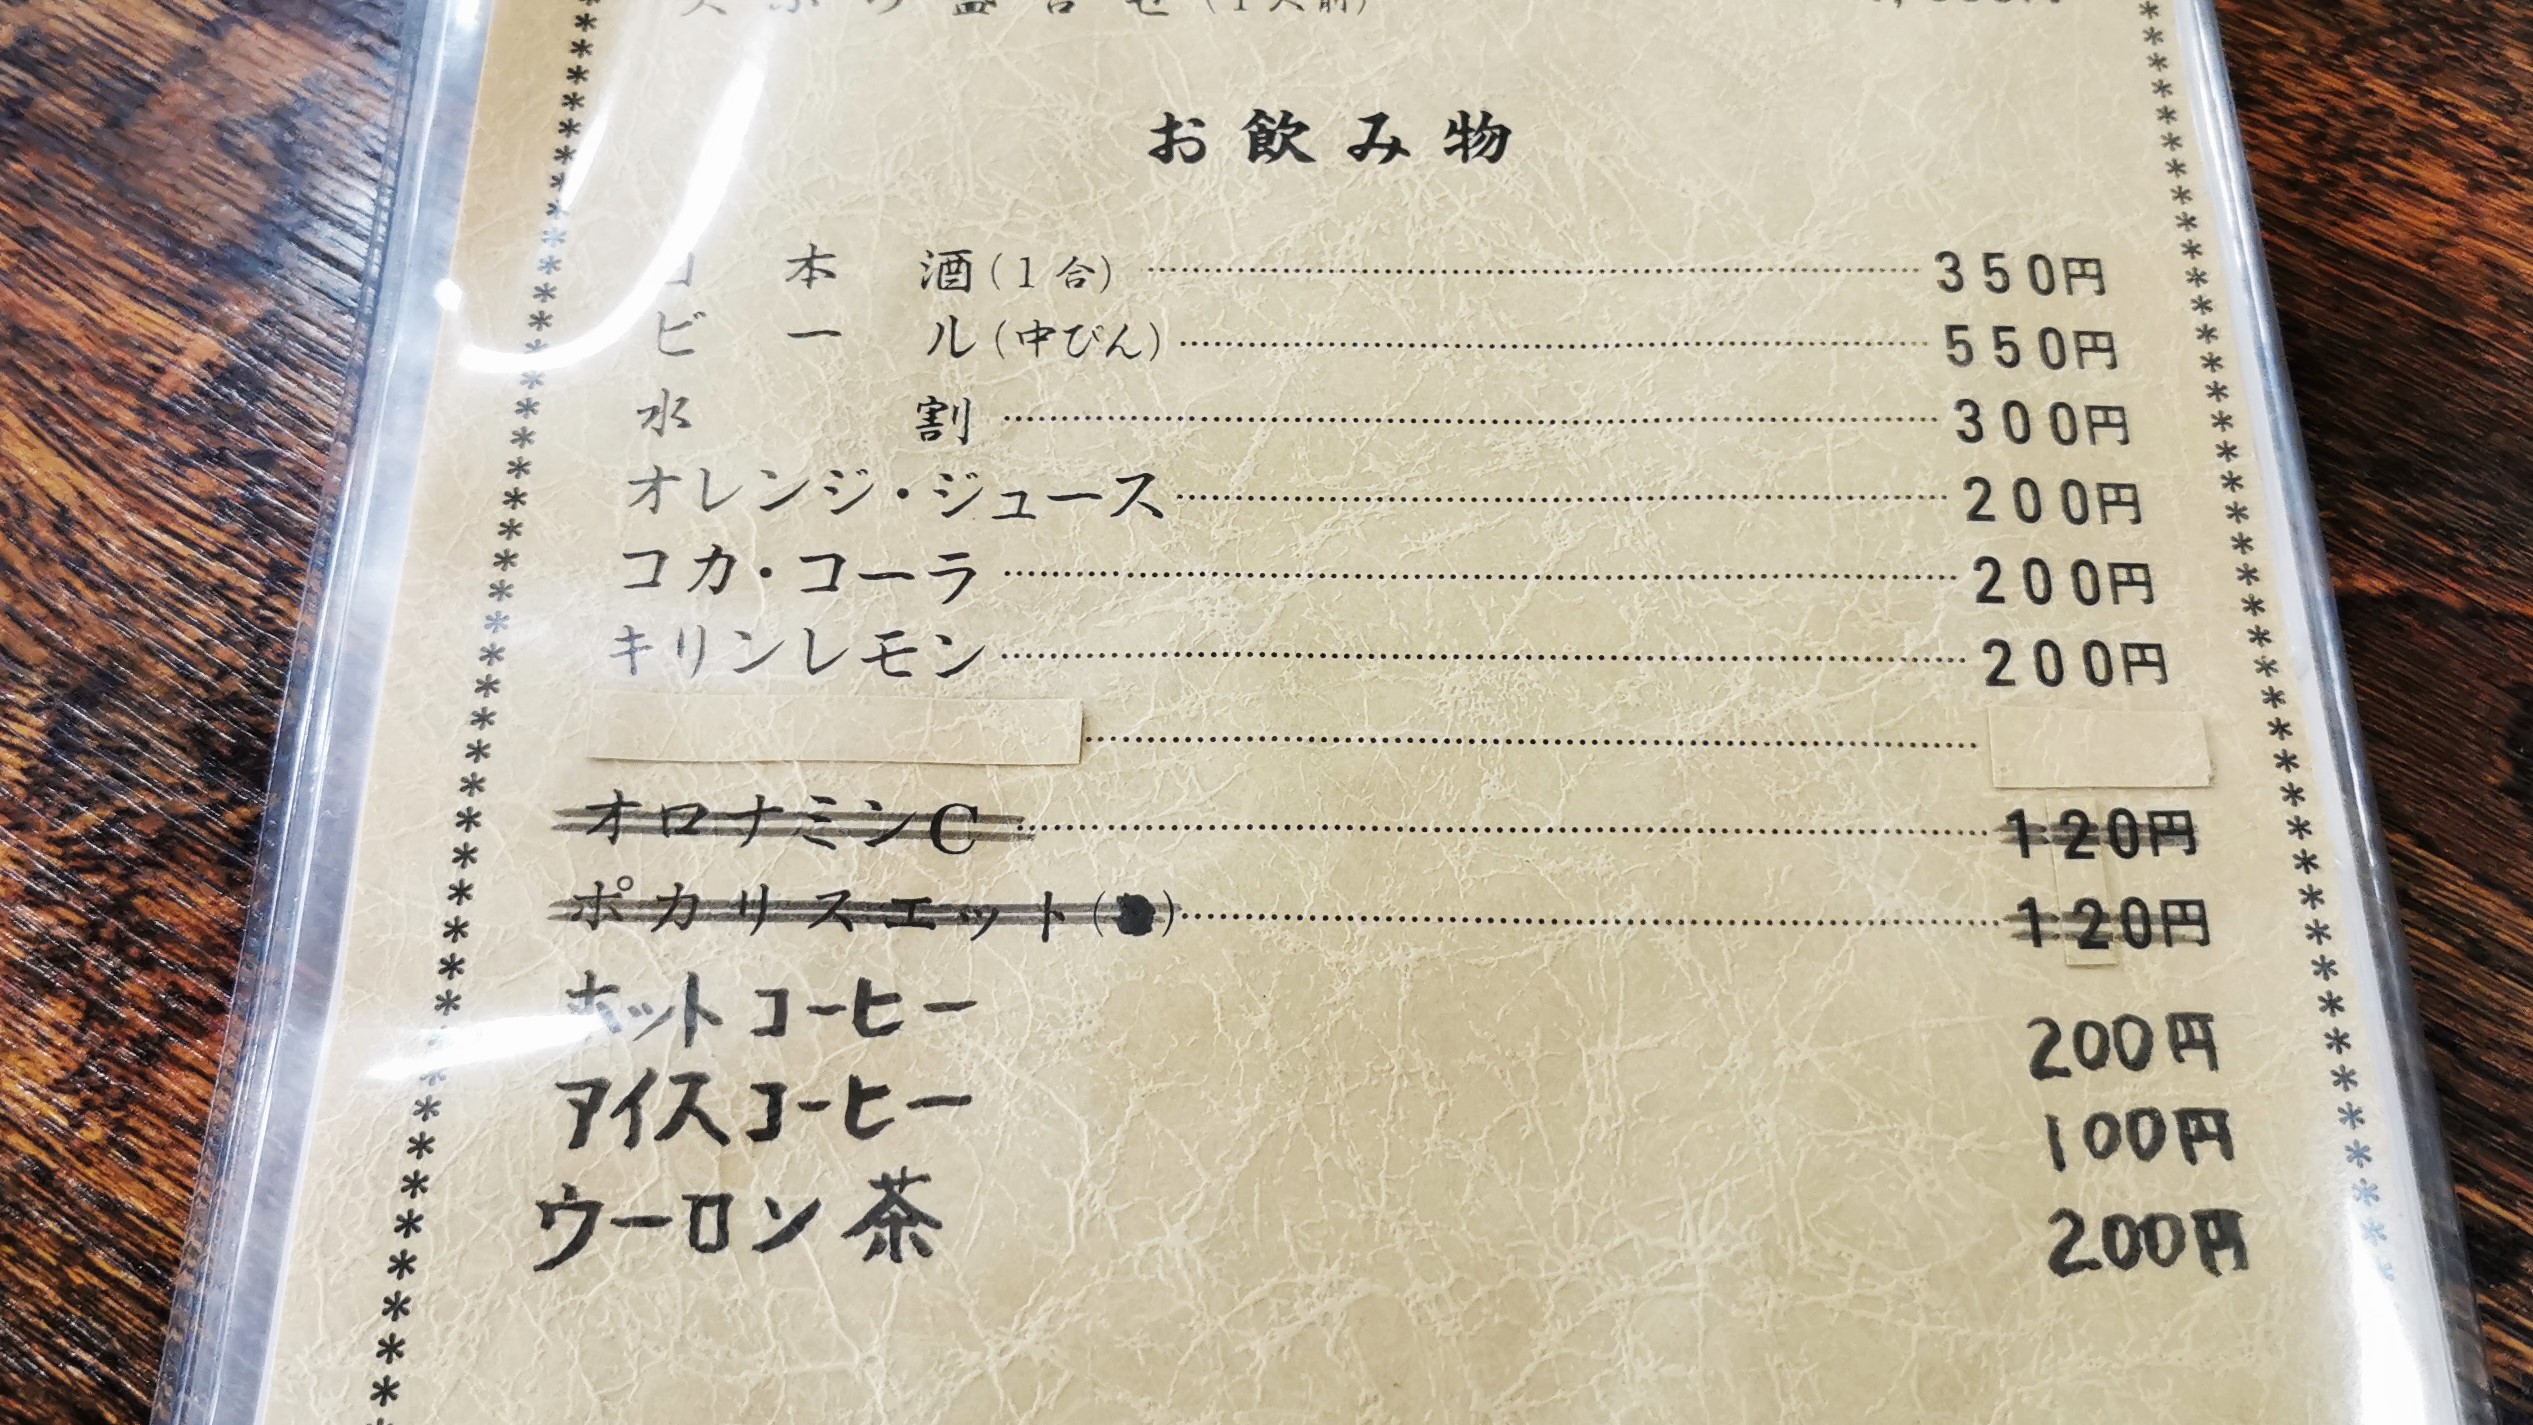 盛合せ(1人前)
お飲み物
日本酒(1合) 350円
ビール(中びん) 550円
水割 300円
オレンジ・ジュース 200円
コカ・コーラ 200円
キリンレモン 200円
オロナミンC 120円
ポカリスエット( ) 120円
ホットコーヒー 200円
アイスコーヒー 100円
ウーロン茶 200円